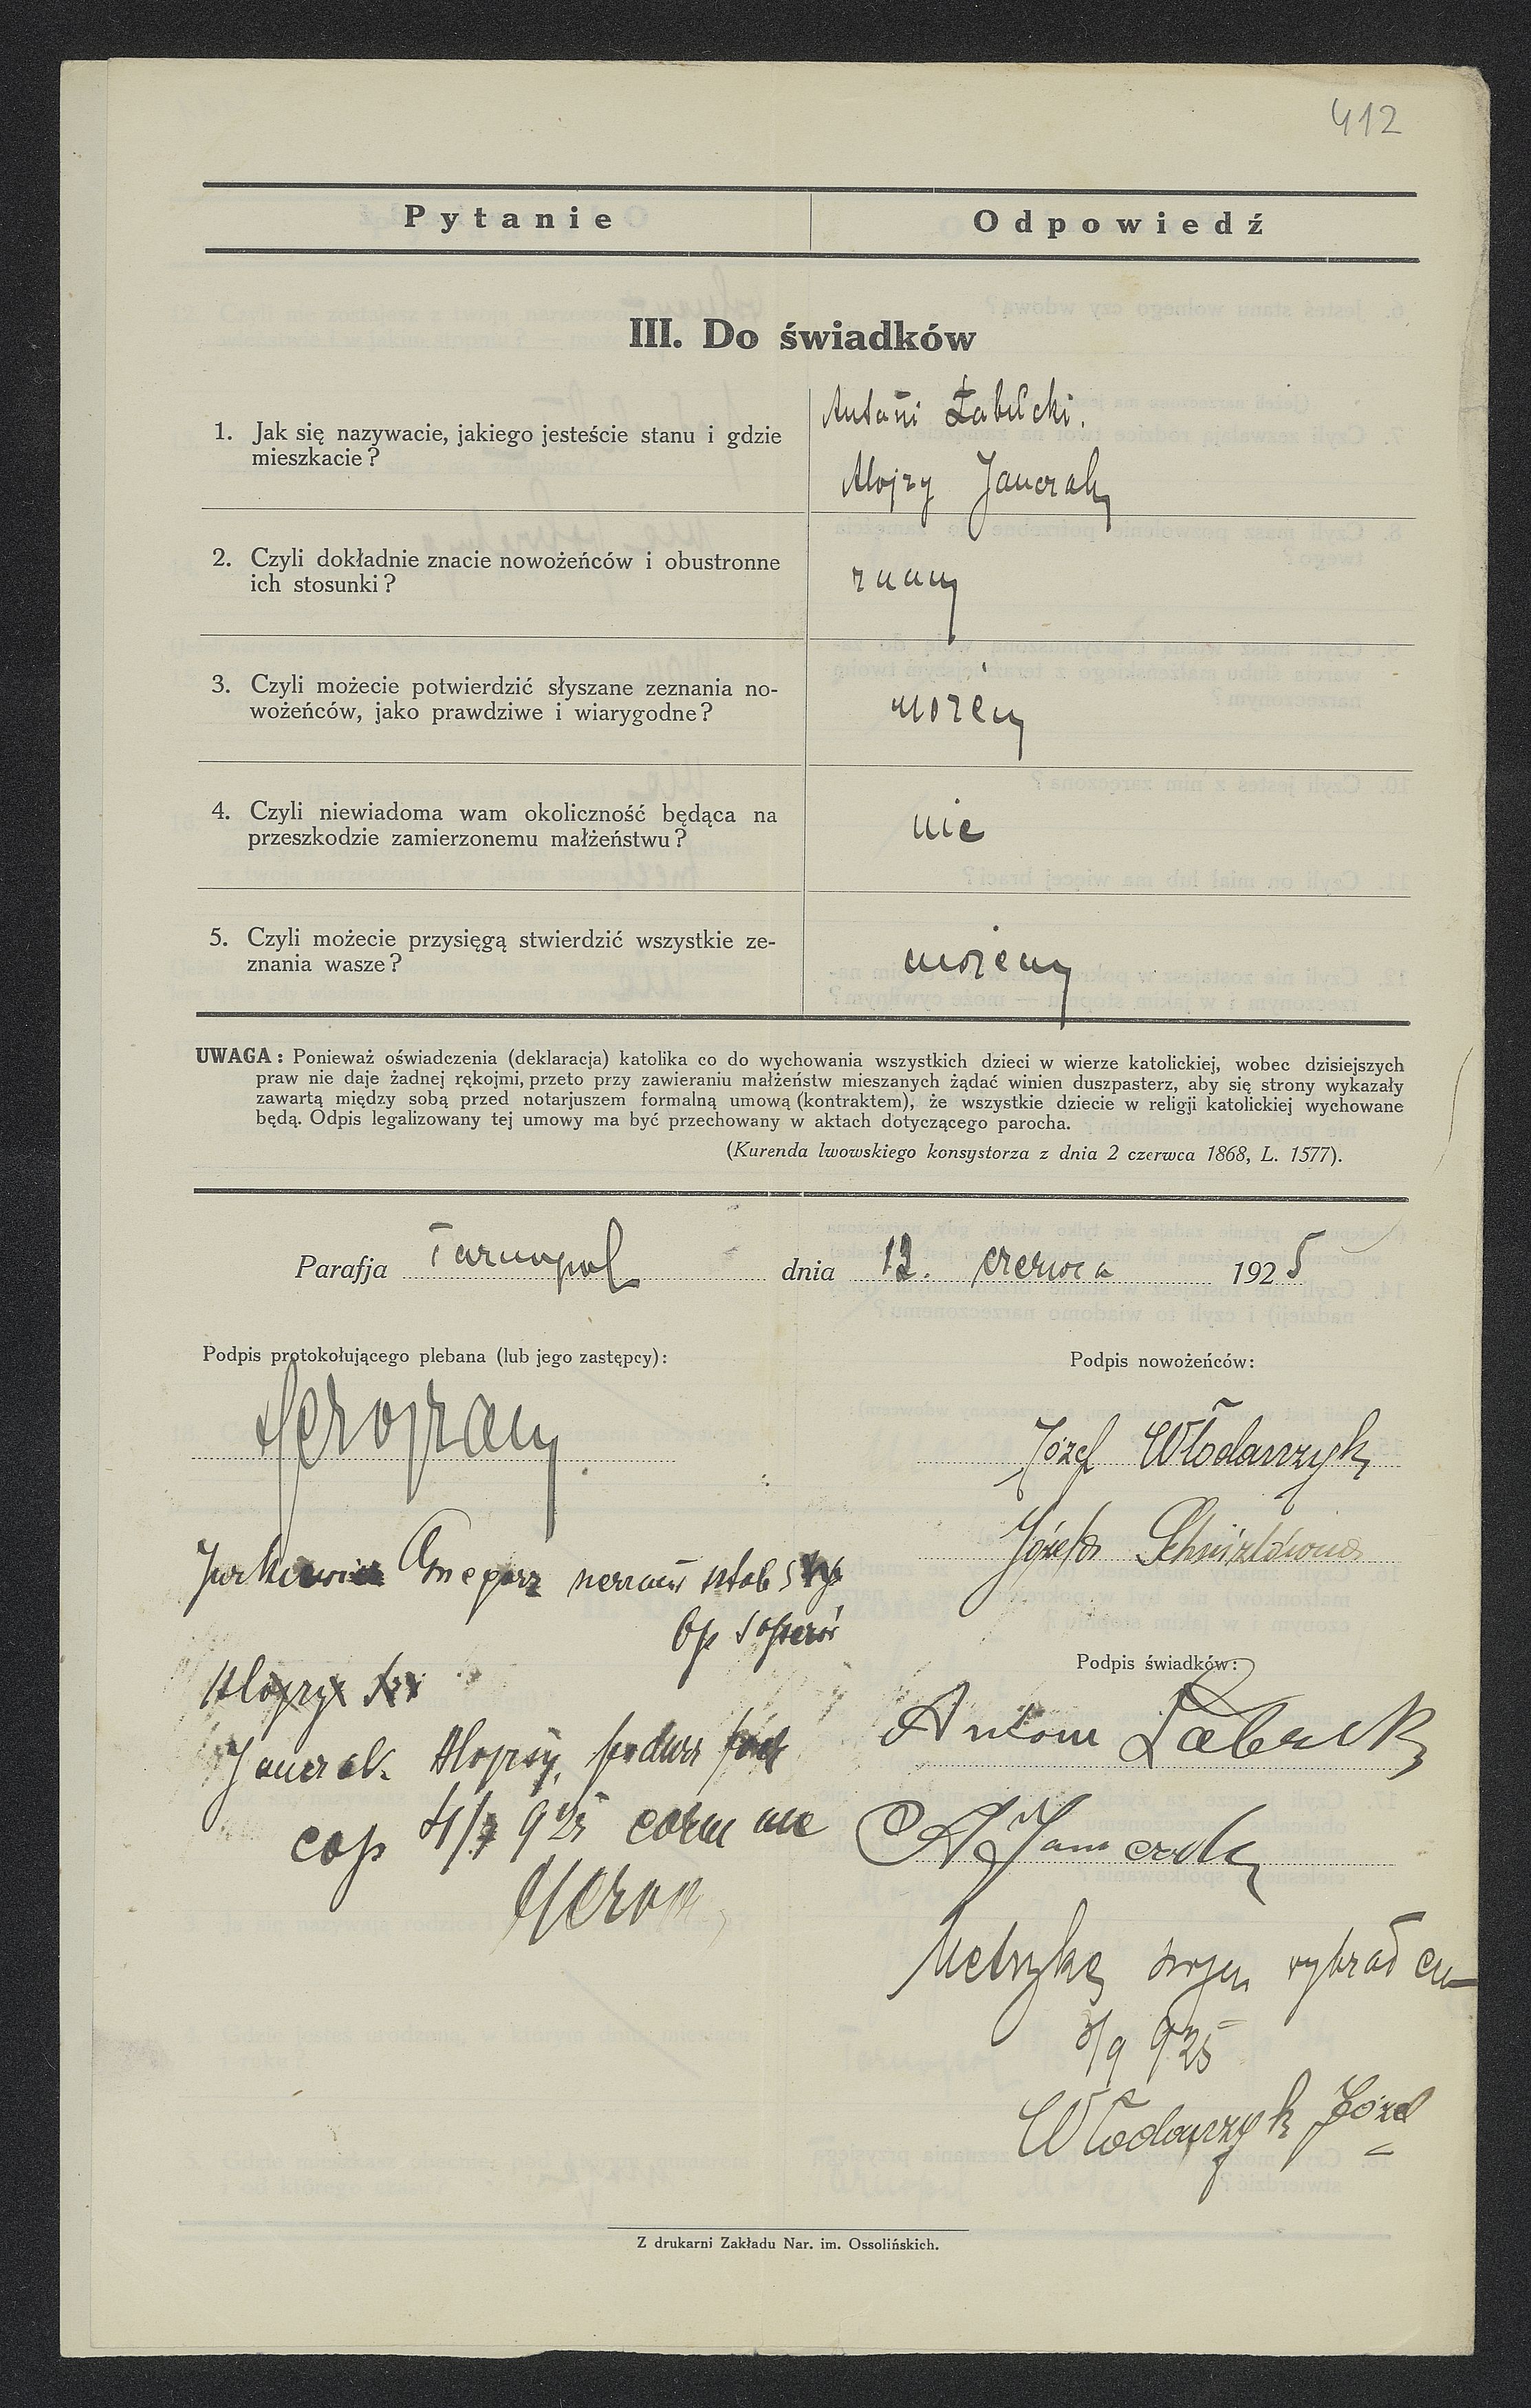 412
Pytanie Odpowiedź
III. Do świadków
1. Jak się nazywacie, jakiego jesteście stanu i gdzie
mieszkacie?
Antoni Łabucki.
Alojzy Janczak
2. Czyli dokładnie znacie nowożeńców i obustronne
ich stosunki?
znamy
3. Czyli możecie potwierdzić słyszane zeznania no-
wożeńców, jako prawdziwe i wiarygodne?
możemy
4. Czyli niewiadoma wam okoliczność będąca na
przeszkodzie zamierzonemu małżeństwu?
nie
5. Czyli możecie przysięgą stwierdzić wszystkie ze-
znania wasze?
możemy
UWAGA: Ponieważ oświadczenia (deklaracja) katolika co do wychowania wszystkich dzieci w wierze katolickiej, wobec dzisiejszych
praw nie daje żadnej rękojmi, przeto przy zawieraniu małżeństw mieszanych żądać winien duszpasterz, aby się strony wykazały
zawartą między sobą przed notarjuszem formalną umową (kontraktem), że wszystkie dziecie w religji katolickiej wychowane
będą. Odpis legalizowany tej umowy ma być przechowany w aktach dotyczącego parocha.
(Kurenda lwowskiego konsystorza z dnia 2 czerwca 1868, L. 1577).
Parafja Tarnopol dnia 12. czerwca 1925
Podpis protokołującego plebana (lub jego zastępcy):
Podpis nowożeńców:
Józef Włodarczyk
Józefa
Podpis świadków:
Antoni
A Janczak
Janczak Alojzy,
925
Metrykę swoją wybrał
3/9 925
Włodarczyk Józef
Z drukarni Zakładu Nar. im. Ossolińskich.